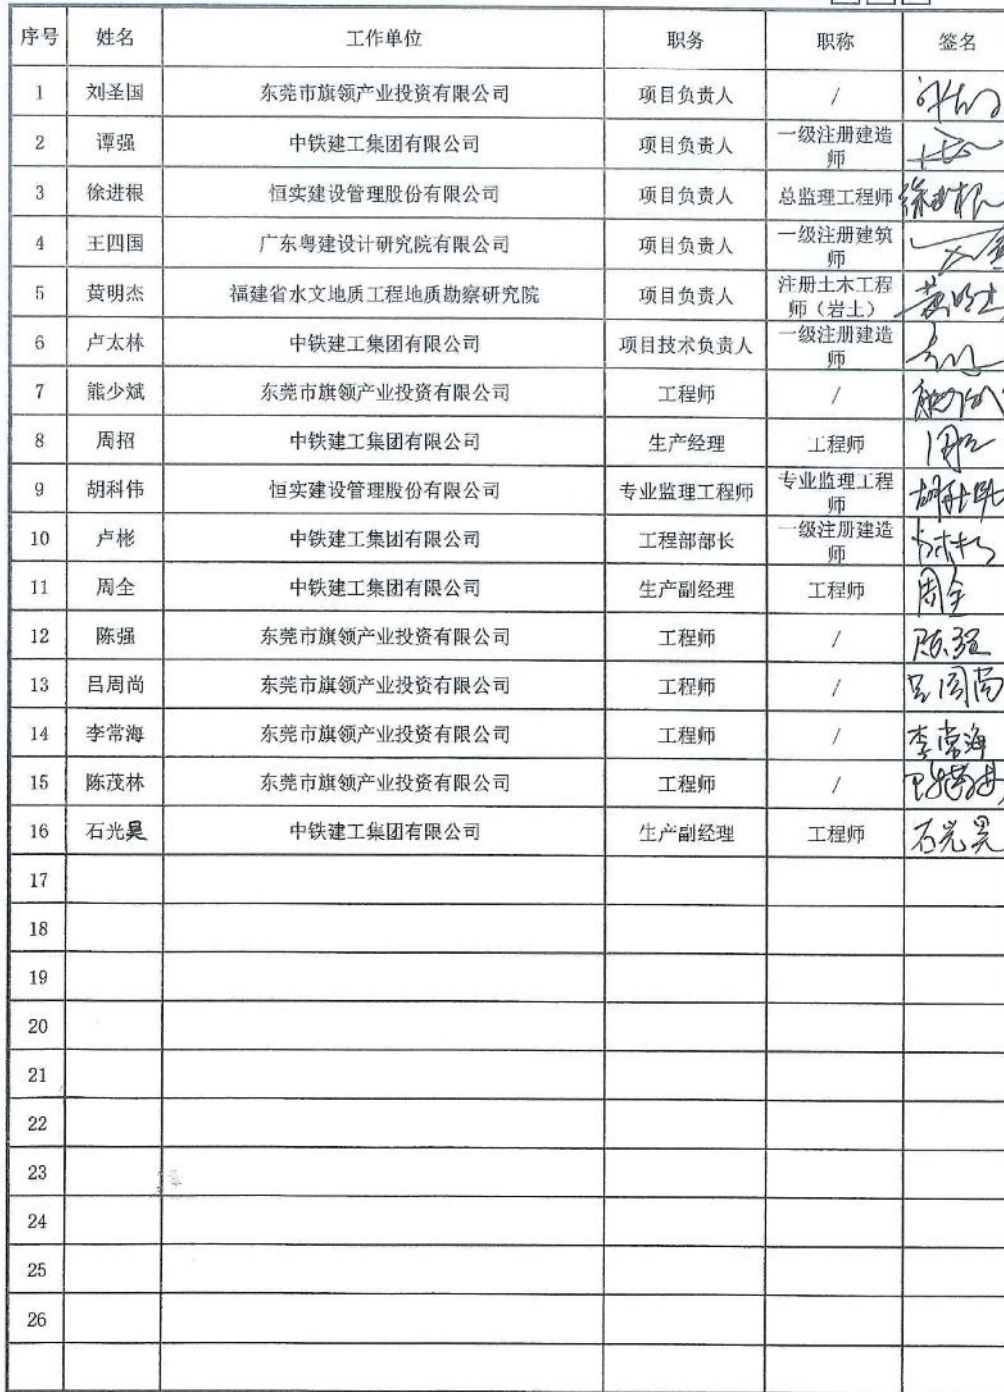 序号 姓名 工作单位 职务 职称 签名
1 刘圣国 东莞市旗领产业投资有限公司 项目负责人 /
2 谭强 中铁建工集团有限公司 项目负责人 一级注册建造
师
3 徐进根 恒实建设管理股份有限公司 项目负责人 总监理工程师 徐进根
4 王四国 广东粤建设计研究院有限公司 项目负责人 一级注册建筑
师
5 黄明杰 福建省水文地质工程地质勘察研究院 项目负责人 注册土木工程 黄明杰
师（岩土）
6 卢太林 中铁建工集团有限公司 项目技术负责人 一级注册建造
师
7 熊少斌 东莞市旗领产业投资有限公司 工程师 /
8 周招 中铁建工集团有限公司 生产经理 工程师 周招
9 胡科伟 恒实建设管理股份有限公司 专业监理工程师 专业监理工程 胡科伟
师
10 卢彬 中铁建工集团有限公司 工程部部长 一级注册建造
师
11 周全 中铁建工集团有限公司 生产副经理 工程师 周全
12 陈强 东莞市旗领产业投资有限公司 工程师 / 陈强
13 吕周尚 东莞市旗领产业投资有限公司 工程师 / 吕周尚
14 李常海 东莞市旗领产业投资有限公司 工程师 / 李常海
15 陈茂林 东莞市旗领产业投资有限公司 工程师 /
16 石光昊 中铁建工集团有限公司 生产副经理 工程师 石光昊
17
18
19
20
21
22
23
24
25
26